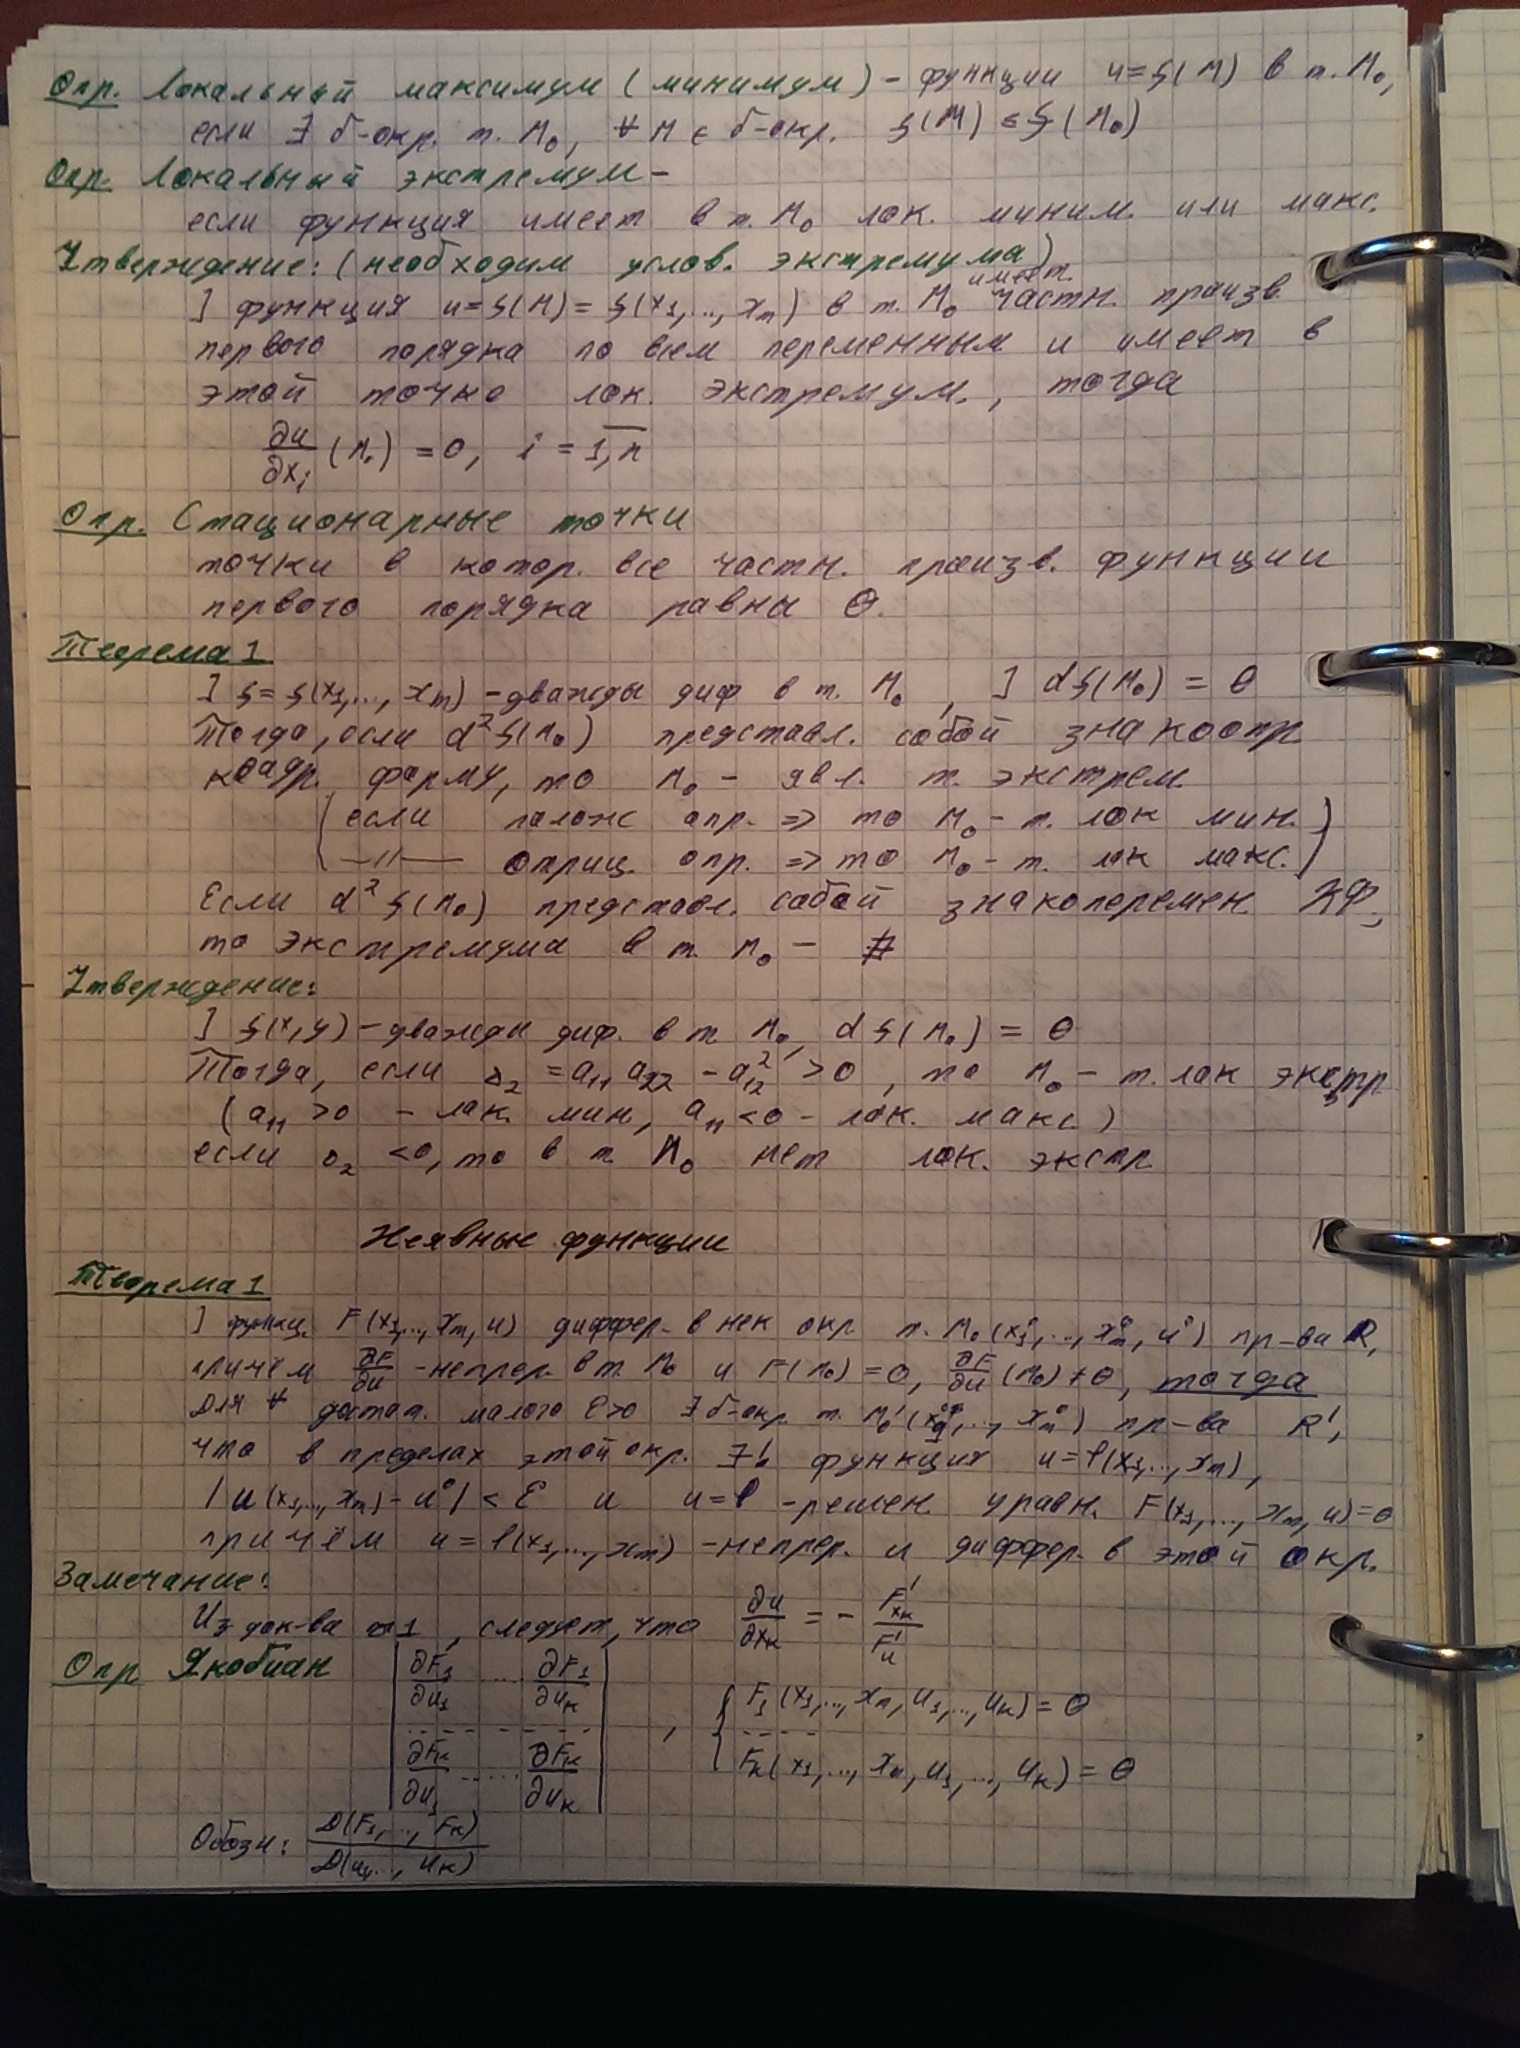 Опр. Локальный максимум (минимум) - функции u=f(M) в т. M₀,
если ∃ δ-окр. т. M₀, ∀ M ∈ δ-окр. f(M) ≤ f(M₀)
Опр. Локальный экстремум -
если функция имеет в т. M₀ лок. миним. или макс.
Утверждение: (необходим услов. экстремума)
] функция u=f(M) = f(x₁,..., xₘ) в т. M₀ имеет частн. произв.
первого порядка по всем переменным и имеет в
этой точке лок. экстремум., тогда
∂u/∂xᵢ (M₀) = 0, i = 1,n
Опр. Стационарные точки
точки в котор. все частн. произв. функции
первого порядка равны 0.
Теорема 1
] f = f(x₁,..., xₘ) - дважды диф в т. M₀, ] df(M₀) = 0
Тогда, если d²f(M₀) представл. собой знакоопр
квадр. форму, то M₀ - явл. т. экстрем.
(если полож опр. => то M₀ - т. лок мин.
—//— отриц. опр. => то M₀ - т. лок макс.)
Если d²f(M₀) представл. собой знакоперемен КФ,
то экстремума в т. M₀ - ∄
Утверждение:
] f(x,y) - дважды диф. в т. M₀, df(M₀) = 0
Тогда, если δ₂ = a₁₁ a₂₂ - a₁₂² > 0, то M₀ - т. лок экстр
(a₁₁ > 0 - лок. мин, a₁₁ < 0 - лок. макс.)
если δ₂ < 0, то в т. M₀ нет лок. экстр
Неявные функции
Теорема 1
] функц. F(x₁,..., xₘ, u) диффер. в нек окр т. M₀(x₁°,..., xₘ°, u°) пр-ва R,
причём ∂F/∂u - непрер. в т. M₀ и F(M₀) = 0, ∂F/∂u (M₀) ≠ 0, тогда
Для ∀ достат. малого ε>0 ∃ δ-окр. т. M₀'(x₁°,..., xₘ°) пр-ва R',
что в пределах этой окр. ∃! функция u = φ(x₁,..., xₘ),
|u(x₁,..., xₘ) - u°| < ε и u = φ - решен. уравн. F(x₁,..., xₘ, u) = 0
причём u = φ(x₁,..., xₘ) - непрер. и диффер. в этой окр.
Замечание:
Из док-ва 1, следует, что ∂u/∂xₖ = - F'ₓₖ/F'ᵤ
Опр Якобиан | ∂F₁/∂u₁ ..... ∂F₁/∂uₖ |
| - - - - - - - - | , { F₁(x₁,..., xₙ, u₁,..., uₖ) = 0
| ∂Fₖ/∂u₁ ..... ∂Fₖ/∂uₖ | { - - - - Fₖ(x₁,..., xₙ, u₁,..., uₖ) = 0
Обозн: D(F₁,..., Fₖ)/D(u₁,..., uₖ)